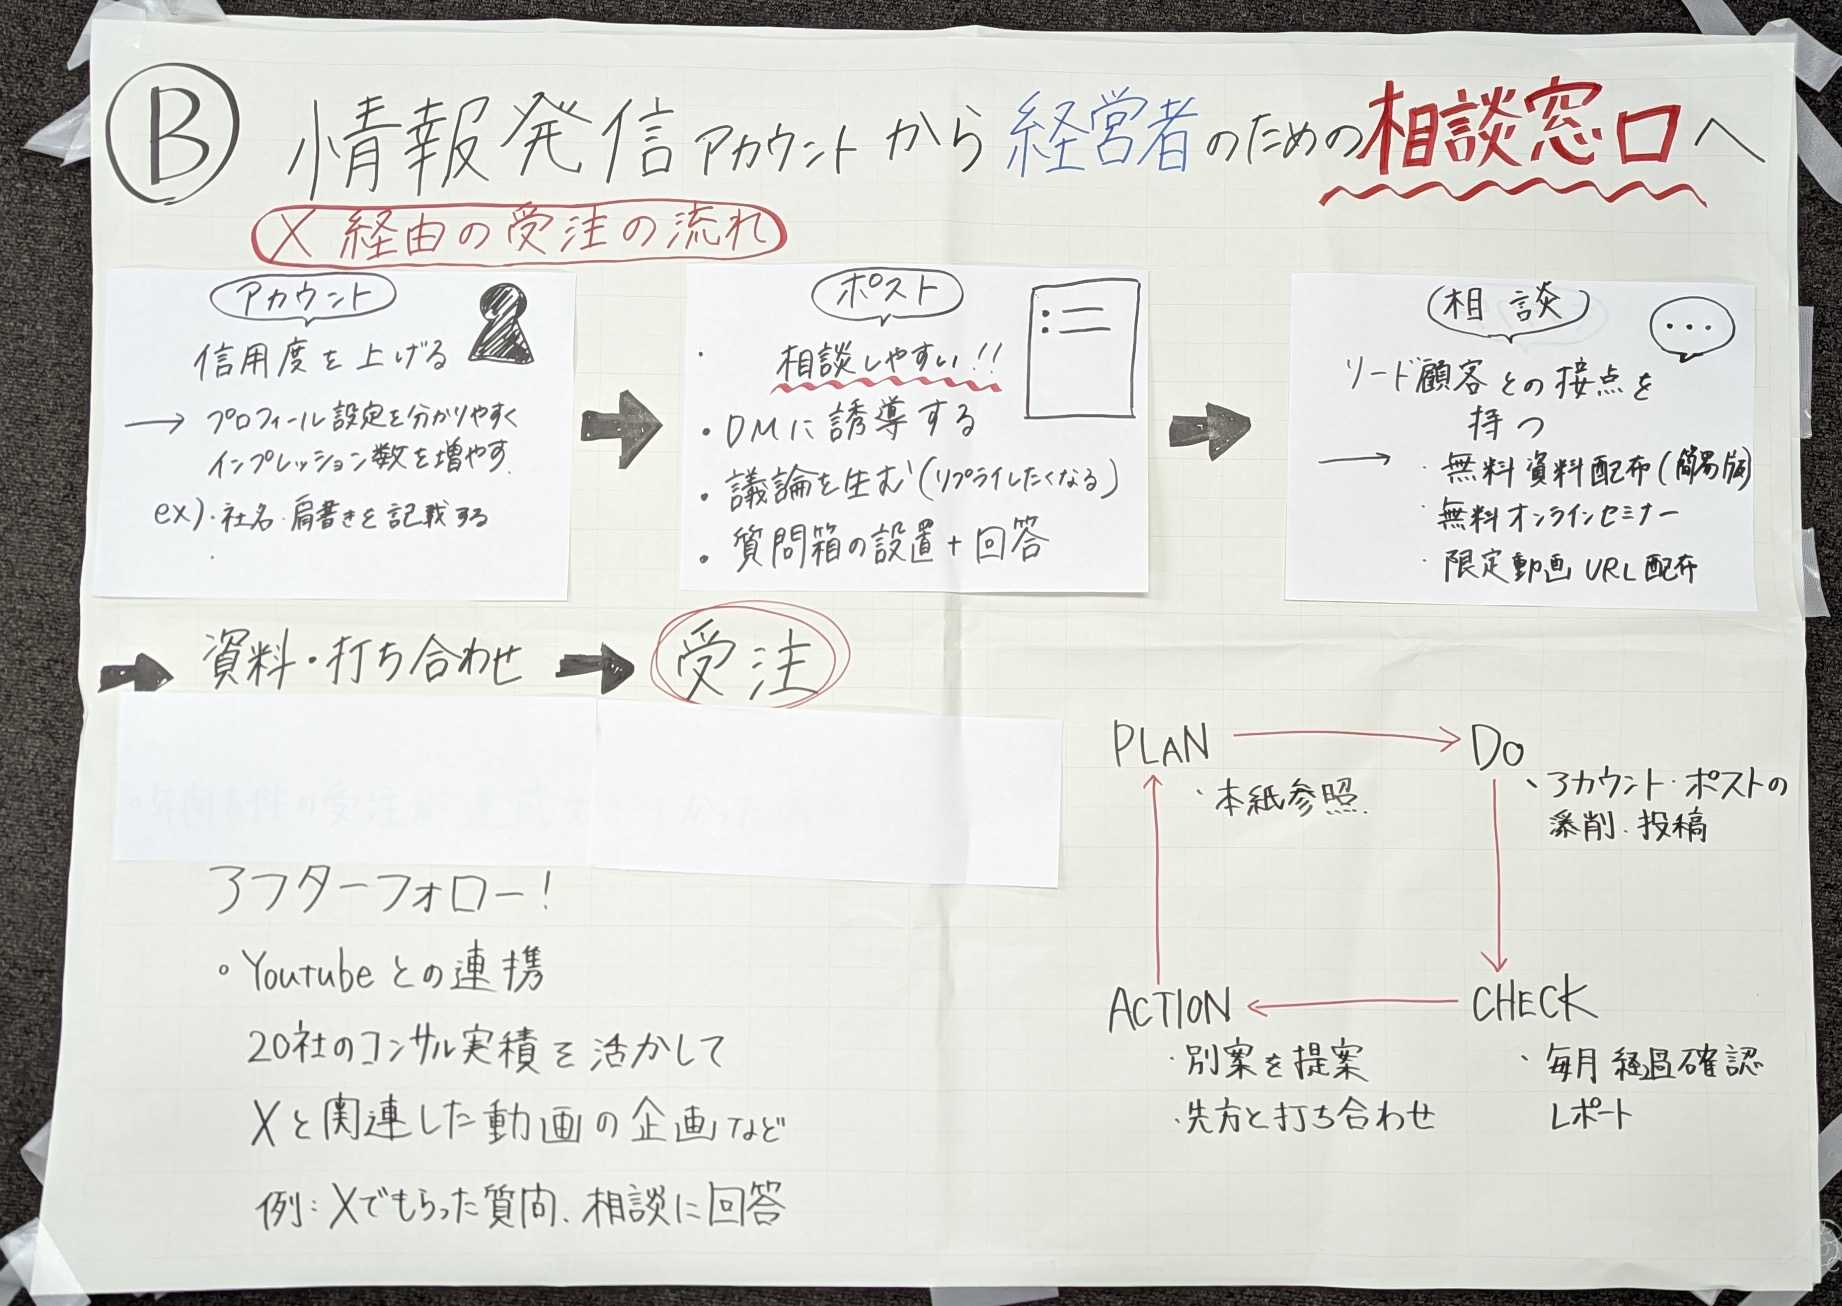 B 情報発信アカウントから経営者のための相談窓口へ
X 経由の受注の流れ
アカウント
信用度を上げる
→ プロフィール設定を分かりやすく
インプレッション数を増やす.
ex)・社名・肩書きを記載する
・
ポスト
・ 相談しやすい!!
・DMに誘導する
・議論を生む(リプライしたくなる)
・質問箱の設置+回答
相談
リード顧客との接点を
持つ
→ ・無料資料配布(簡易版)
・無料オンラインセミナー
・限定動画URL配布
資料・打ち合わせ
受注
アフターフォロー!
○Youtubeとの連携
20社のコンサル実積を活かして
Xと関連した動画の企画など
例:Xでもらった質問、相談に回答
PLAN
・本紙参照.
DO
・アカウント・ポストの
添削、投稿
CHECK
・毎月経過確認
レポート
ACTION
・別案を提案
・先方と打ち合わせ